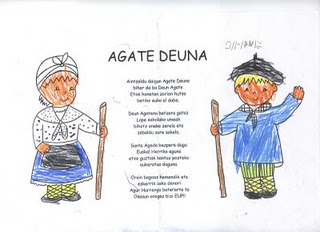 AGATE DEUNA
Aintzaldu daigun Agate Deuna
bihar da ba Deun Agate
Etxe honetan zorion hutsa
betiko euko al dabe.
Deun Agatena batzera gatoz
Lope eskolako umeak
bihotz oneko zarela eta
zabaldu zure sakela.
Santa Ageda bezpera dugu
Euskal Herriko eguna
etxe guztiak kantuz pozteko
aukeratua duguna
Orain bagoaz hemendik eta
eskerrik asko denori
Agur Hurrengo baterarte ta
Osasun onegaz bizi EUP!!